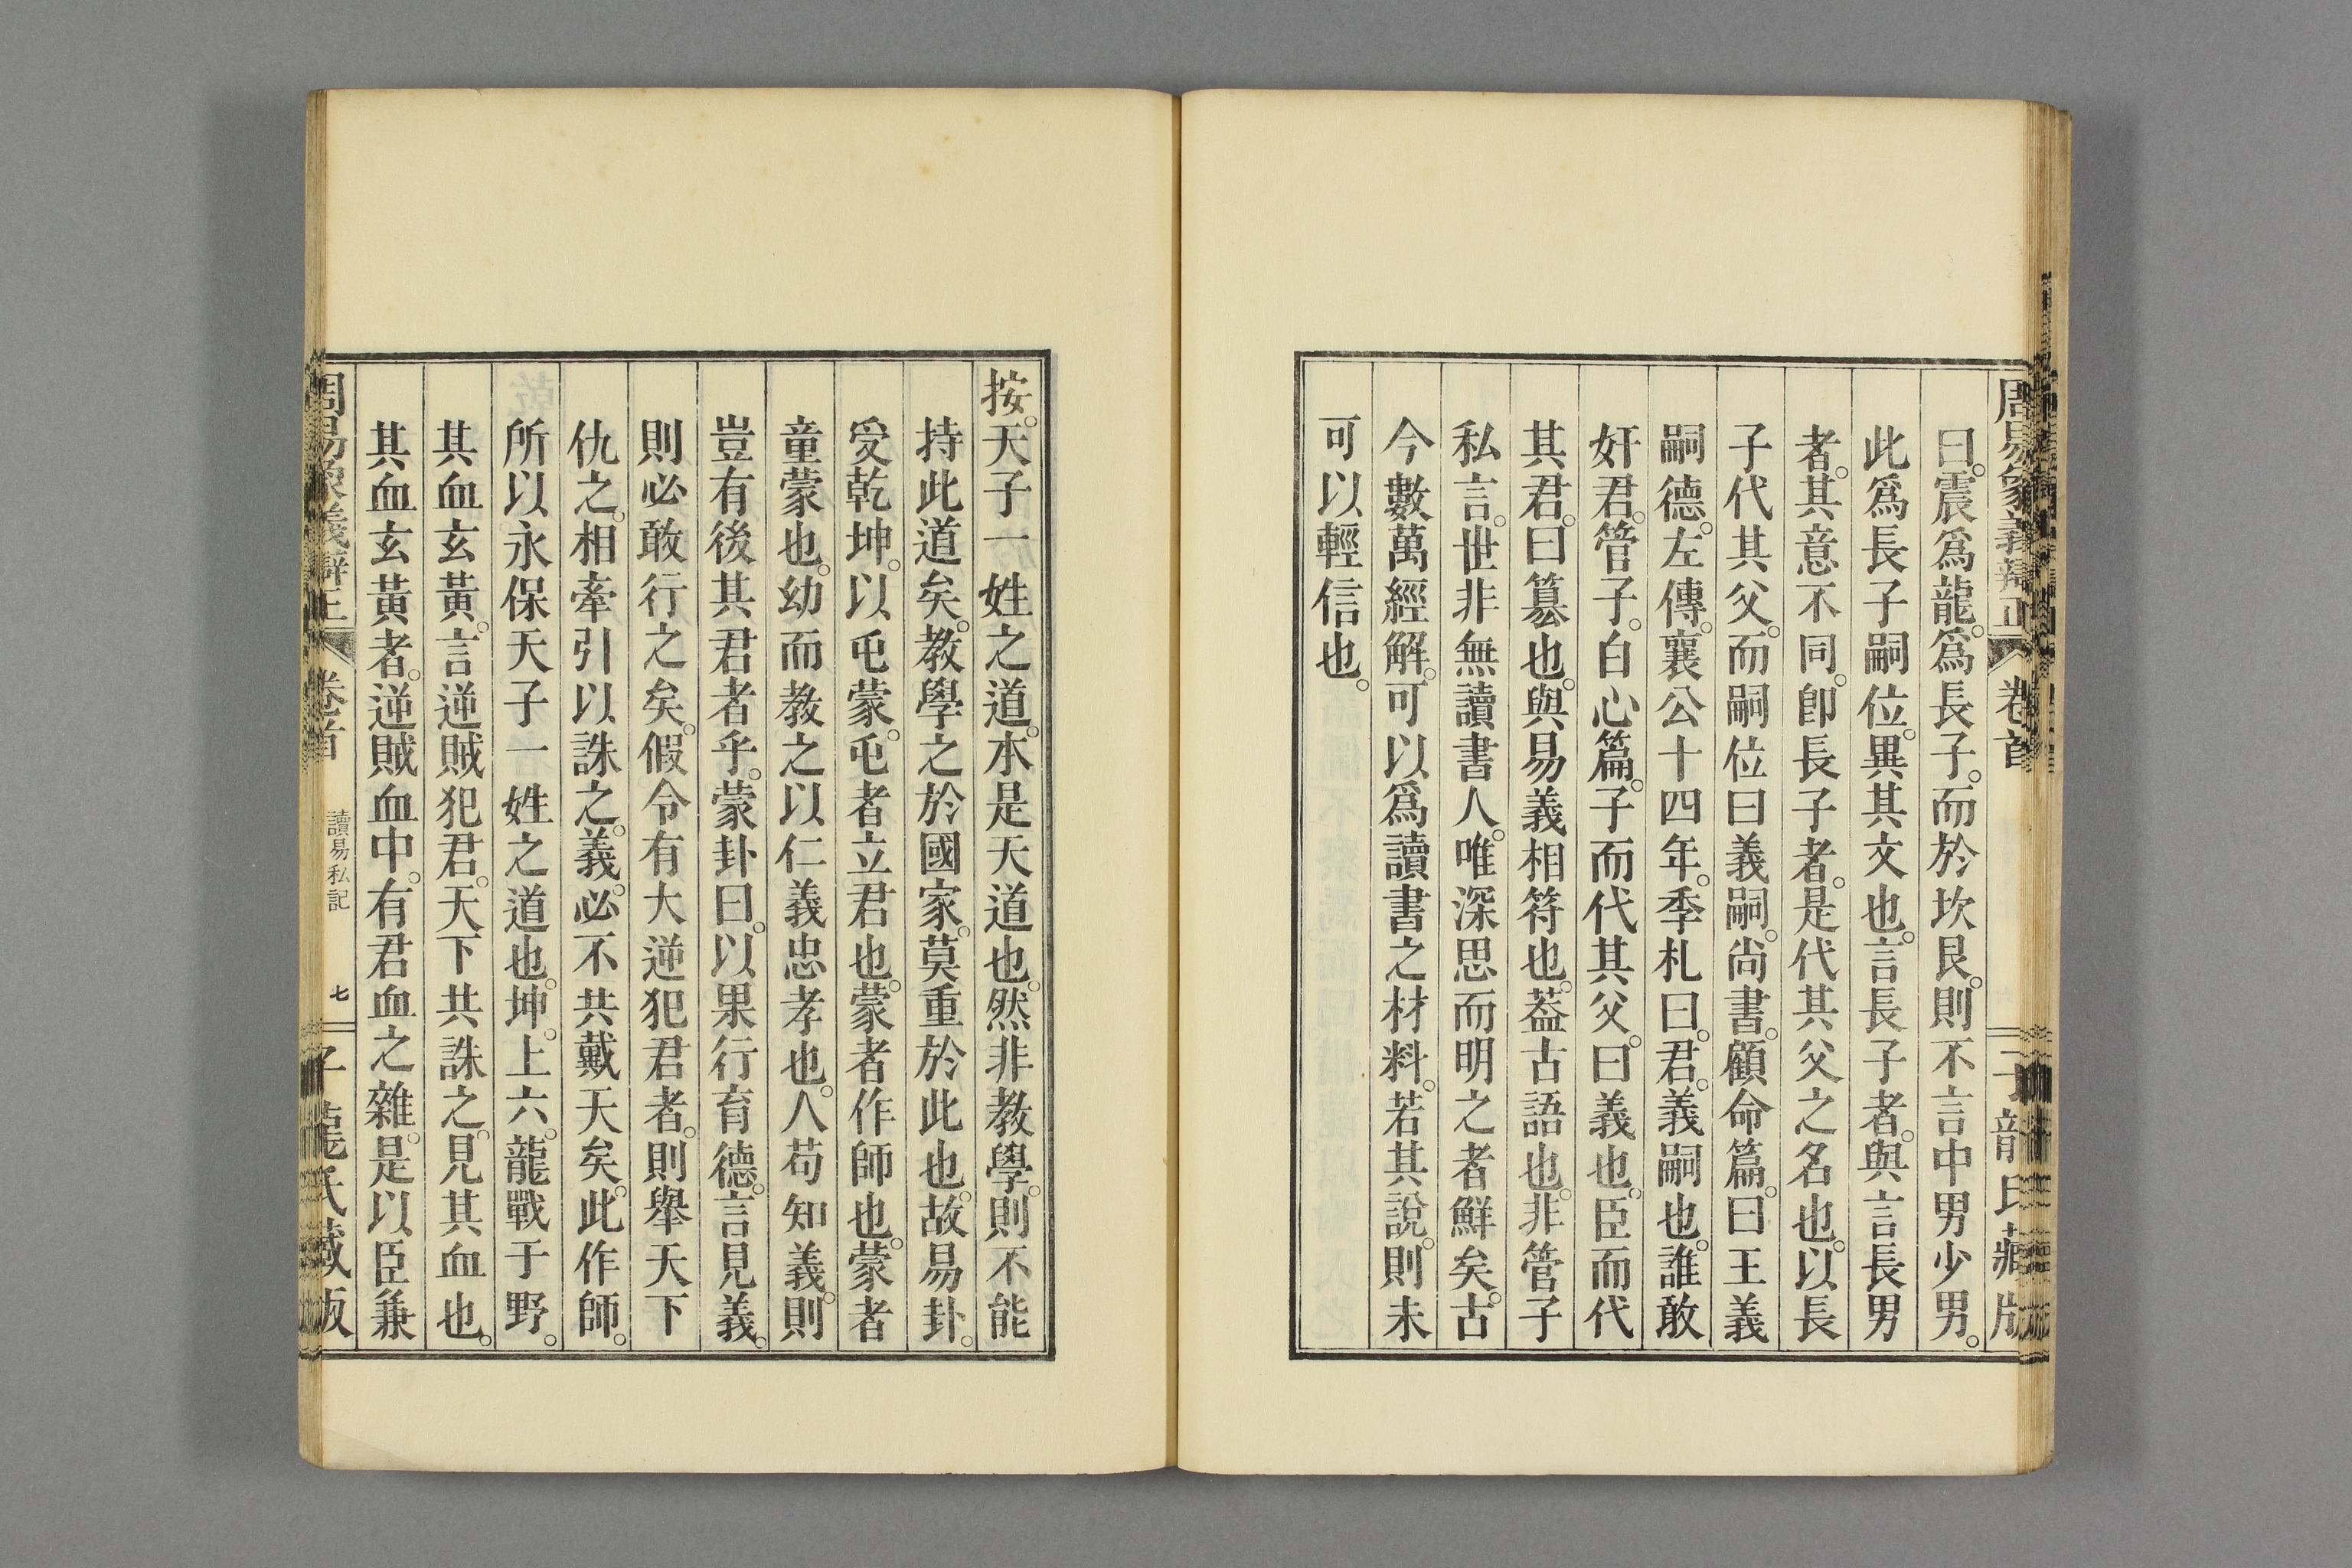 周易象義辯正 卷首 子龍氏藏版
曰。震爲龍。爲長子。而於坎艮。則不言中男少男。
此爲長子嗣位。異其文也。言長子者。與言長男
者。其意不同。卽長子者。是代其父之名也。以長
子代其父。而嗣位曰義嗣。尚書。顧命篇。曰王義
嗣德。左傳。襄公十四年。季札曰。君。義嗣也。誰敢
奸君。管子。白心篇。子而代其父。曰義也。臣而代
其君。曰簒也。與易義相符也。葢古語也。非管子
私言。世非無讀書人。唯深思而明之者鮮矣。古
今數萬經解。可以爲讀書之材料。若其說。則未
可以輕信也。
按。天子一姓之道。本是天道也。然非教學。則不能
持此道矣。教學之於國家。莫重於此也。故易卦。
受乾坤。以屯蒙。屯者立君也。蒙者作師也。蒙者
童蒙也。幼而教之以仁義忠孝也。人苟知義。則
豈有後其君者乎。蒙卦曰。以果行育德。言見義。
則必敢行之矣。假令有大逆犯君者。則舉天下
仇之。相牽引以誅之。義。必不共戴天矣。此作師。
所以永保天子一姓之道也。坤。上六。龍戰于野。
其血玄黃。言逆賊犯君。天下共誅之。見其血也。
其血玄黃者。逆賊血中。有君血之雜。是以臣兼
周易象義辯正 卷首 讀易私記 七 子龍氏藏版